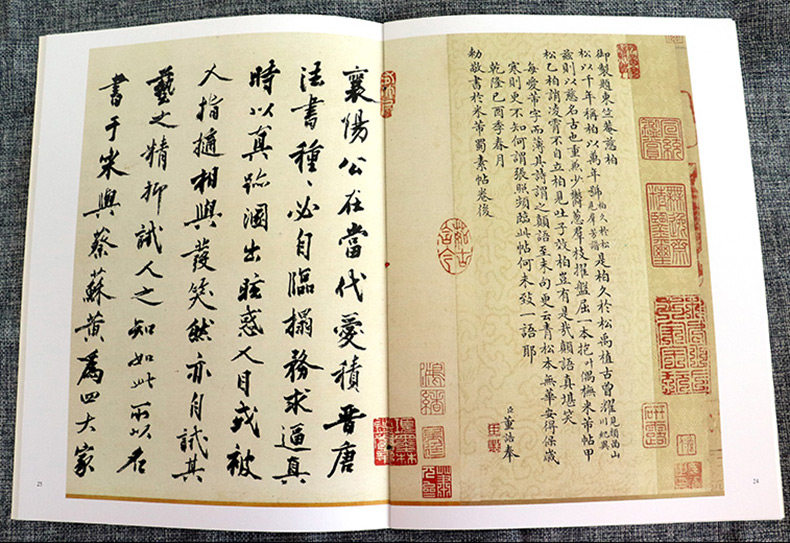 御製題東竺菴慈柏
松以千年稱柏以萬年論柏久於松見羣芳譜是柏久於松萬植古曾濯
茲則以慈名古也重蕉少鬱蔥羣枝擢盤屈一本抱隅撫米芾帖甲
松乙柏誚凌霄不自立柏見吐子效柏豈有是哉顛語真堪笑
每愛芾字而薄其詩謂之顛語至末句更云青松本無華安得保歲
寒則更不知何謂張照頻臨此帖何未致一語耶
乾隆己酉季春月 臣董誥奉
勅敬書於米芾蜀素帖卷後
24
襄陽公在當代愛積晉唐
法書種、必自臨搨務求逼真
時以真跡溷出眩惑人目或被
人指擿相與發笑然亦自試其
藝之精抑試人之知如此所以名
書于宋與蔡蘇黃為四大家
25